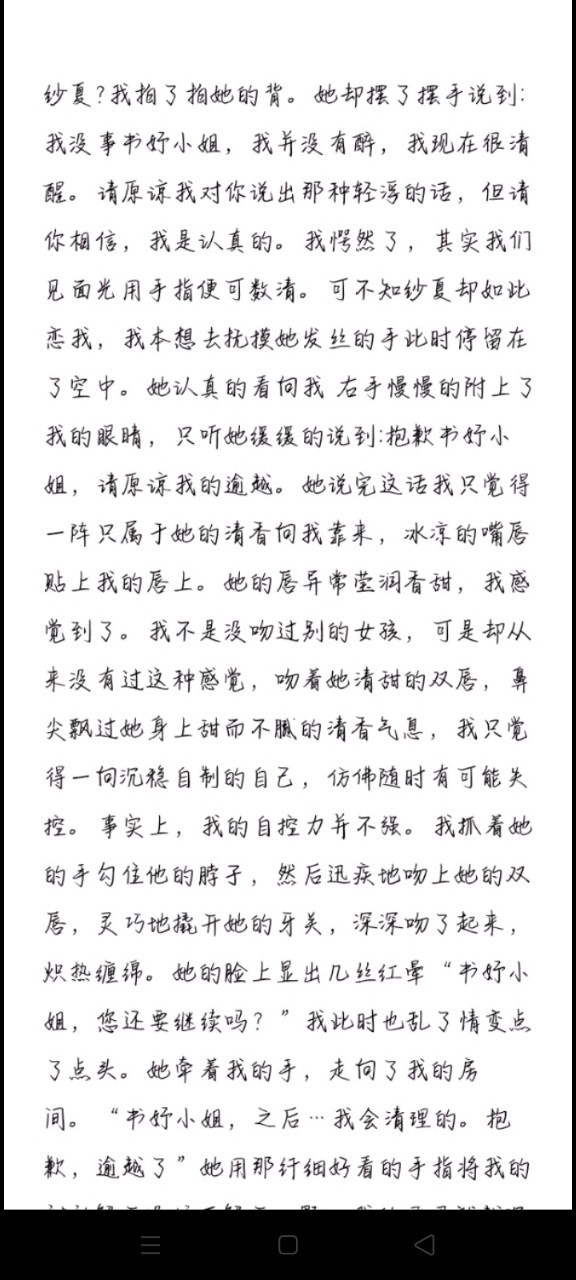 纱夏?我拍了拍她的背。她却摆了摆手说到:
我没事书妤小姐，我并没有醉，我现在很清
醒。请原谅我对你说出那种轻浮的话，但请
你相信，我是认真的。我愕然了，其实我们
见面光用手指便可数清。可不知纱夏却如此
恋我，我本想去抚摸她发丝的手此时停留在
了空中。她认真的看向我 右手慢慢的附上了
我的眼睛，只听她缓缓的说到:抱歉书妤小
姐，请原谅我的逾越。她说完这话我只觉得
一阵只属于她的清香向我靠来，冰凉的嘴唇
贴上我的唇上。她的唇异常莹润香甜，我感
觉到了。我不是没吻过别的女孩，可是却从
来没有过这种感觉，吻着她清甜的双唇，鼻
尖飘过她身上甜而不腻的清香气息，我只觉
得一向沉稳自制的自己，仿佛随时有可能失
控。事实上，我的自控力并不强。我抓着她
的手勾住他的脖子，然后迅疾地吻上她的双
唇，灵巧地撬开她的牙关，深深吻了起来，
炽热缠绵。她的脸上显出几丝红晕“书妤小
姐，您还要继续吗？”我此时也乱了情变点
了点头。她牵着我的手，走向了我的房
间。“书妤小姐，之后…我会清理的。抱
歉，逾越了”她用那纤细好看的手指将我的